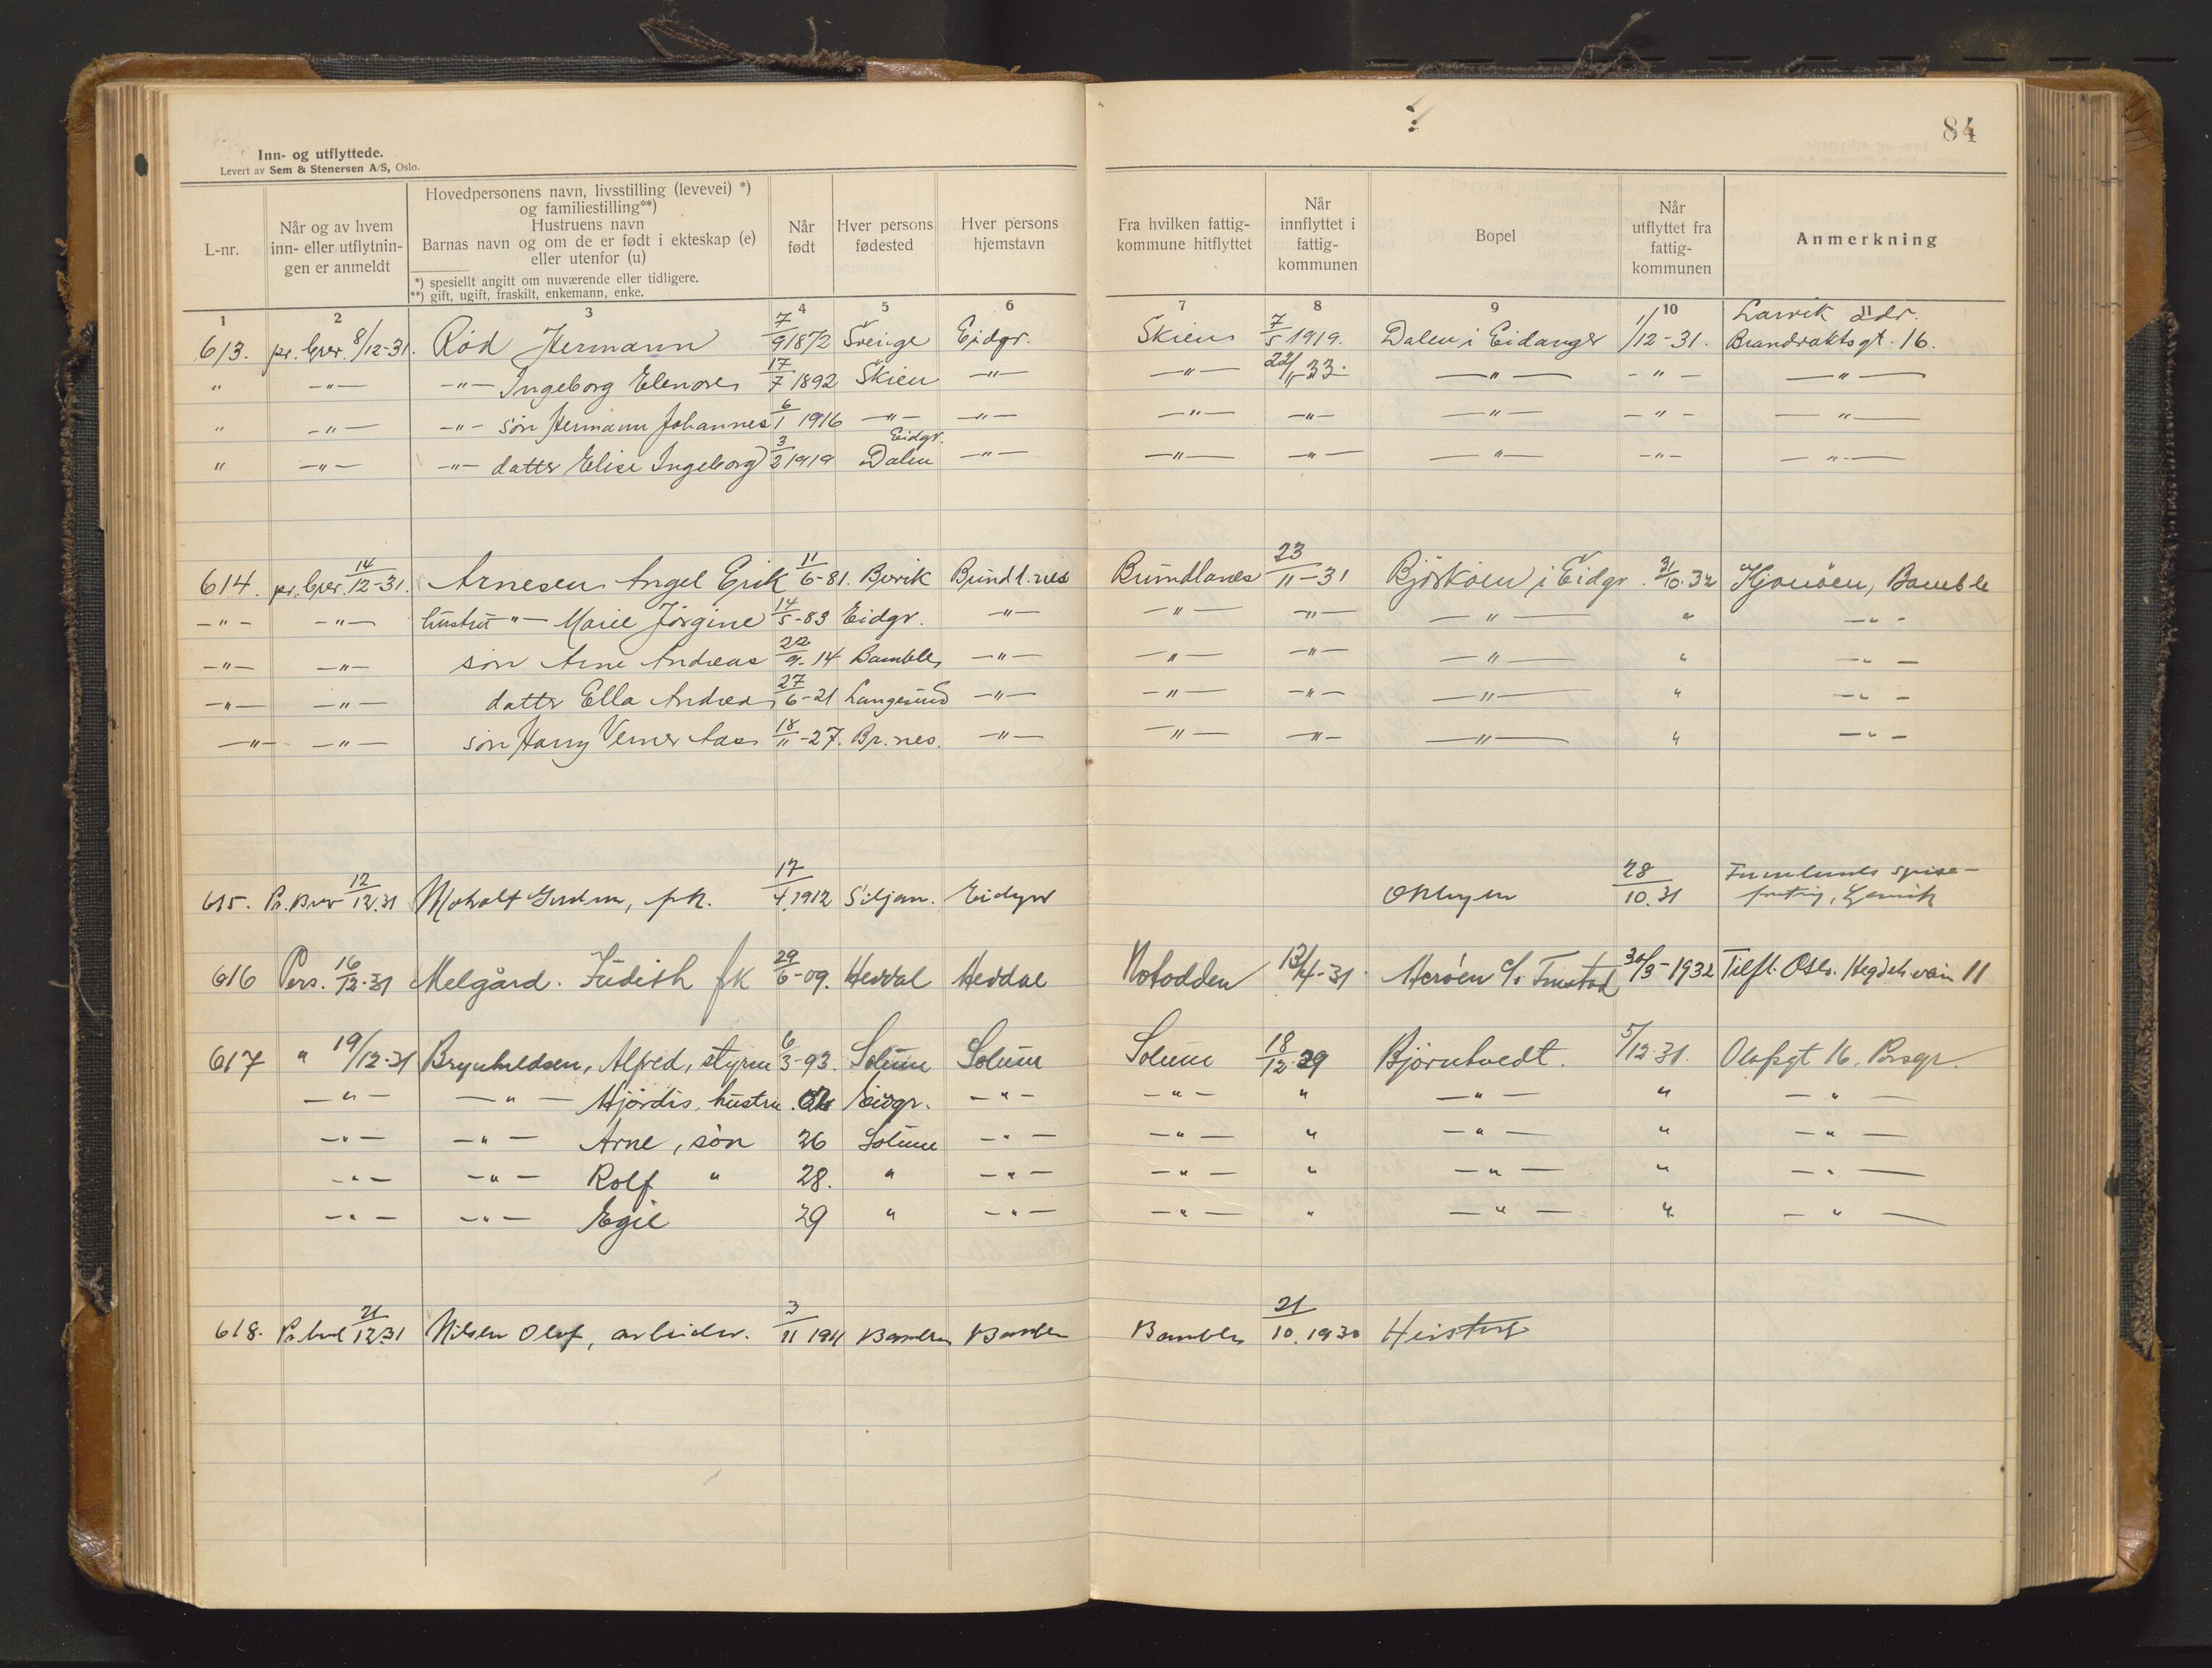 Inn- og utflyttede.
Levert av Sem & Stenersen A/S, Oslo.
84
L-nr.
Når og av hvem inn- eller utflytningen er anmeldt
Hovedpersonens navn, livsstilling (levevei) *)
og familiestilling**)
Hustruens navn
Barnas navn og om de er født i ekteskap (e)
eller utenfor (u)
*) spesiellt angitt om nuværende eller tidligere.
**) gift, ugift, fraskilt, enkemann, enke.
Når født
Hver persons fødested
Hver persons hjemstavn
Fra hvilken fattigkommune hitflyttet
Når innflyttet i fattigkommunen
Bopel
Når utflyttet fra fattigkommunen
Anmerkning
1 2 3 4 5 6 7 8 9 10 11
Larvik adr.
613. pr. brev. 8/12-31. Rød Hermann 7/9 1872 Sverige Eidgr. Skien 7/5 1919. Dalen i Eidanger 1/12-31. Brandvaktsgt. 16.
" -"- -"- Ingeborg Elenore 17/7 1892 Skien -"- -"- -"- -"- -"-
" -"- -"- søn Hermann Johannes 6/1 1916 -"- -"- -"- -"- -"- -"- -"-
" -"- -"- datter Elise Ingeborg 3/2 1919 Eidgr. Dalen -"- -"- -"- -"- -"- -"-
614. pr. brev. 14/12-31. Arnesen Angel Erik 11/6-81. Brevik Brundl.nes Brundlanes 23/11-31 Bjørkøen i Eidgr. 31/10.32 Gjonøen, Bamble
-"- -"- hustru -"- Marie Jørgine 14/5-83 Eidgr. -"- -"- -"- -"- " -"-
-"- -"- søn Arne Andreas 22/9-14 Bamble -"- -"- -"- -"- " -"-
-"- -"- datter Ella Andrea 27/6-21 Langesund -"- -"- -"- -"- " -"-
-"- -"- søn Harry Verner 18/11-27. Br.nes. -"- -"- -"- -"- " -"-
615. Pr. Brev 12/12.31 Moholt Gudrun, frk. 17/4.1912 Siljan. Eidgr 28/10.31
616 Pers. 16/12-31 Melgård. Judith frk 29/6-09. Heddal Heddal Notodden 13/4-31 Herøen c/o 30/3-1932 Tilfl. Oslo. 11
617 " 19/12-31 Brynhildsen, Alfred, styrm 6/3-93. Solum Solum Solum 18/12-29 Bjørntvedt. 5/12-31. Olafsgt 16, Porsgr.
-"- -"- Hjørdis, hustru. Eidgr. -"- -"- " -"- " -"-
-"- -"- Arne, søn 26 Solum -"- -"- " -"- " -"-
-"- -"- Rolf " 28. " -"- -"- " -"- " -"-
-"- -"- Egil 29 " -"- -"- " -"- " -"-
618. 21/12.31 Nilsen Olaf, arbeider. 3/11 1911 Bamble Bamble Bamble 21/10.1930 Heistad